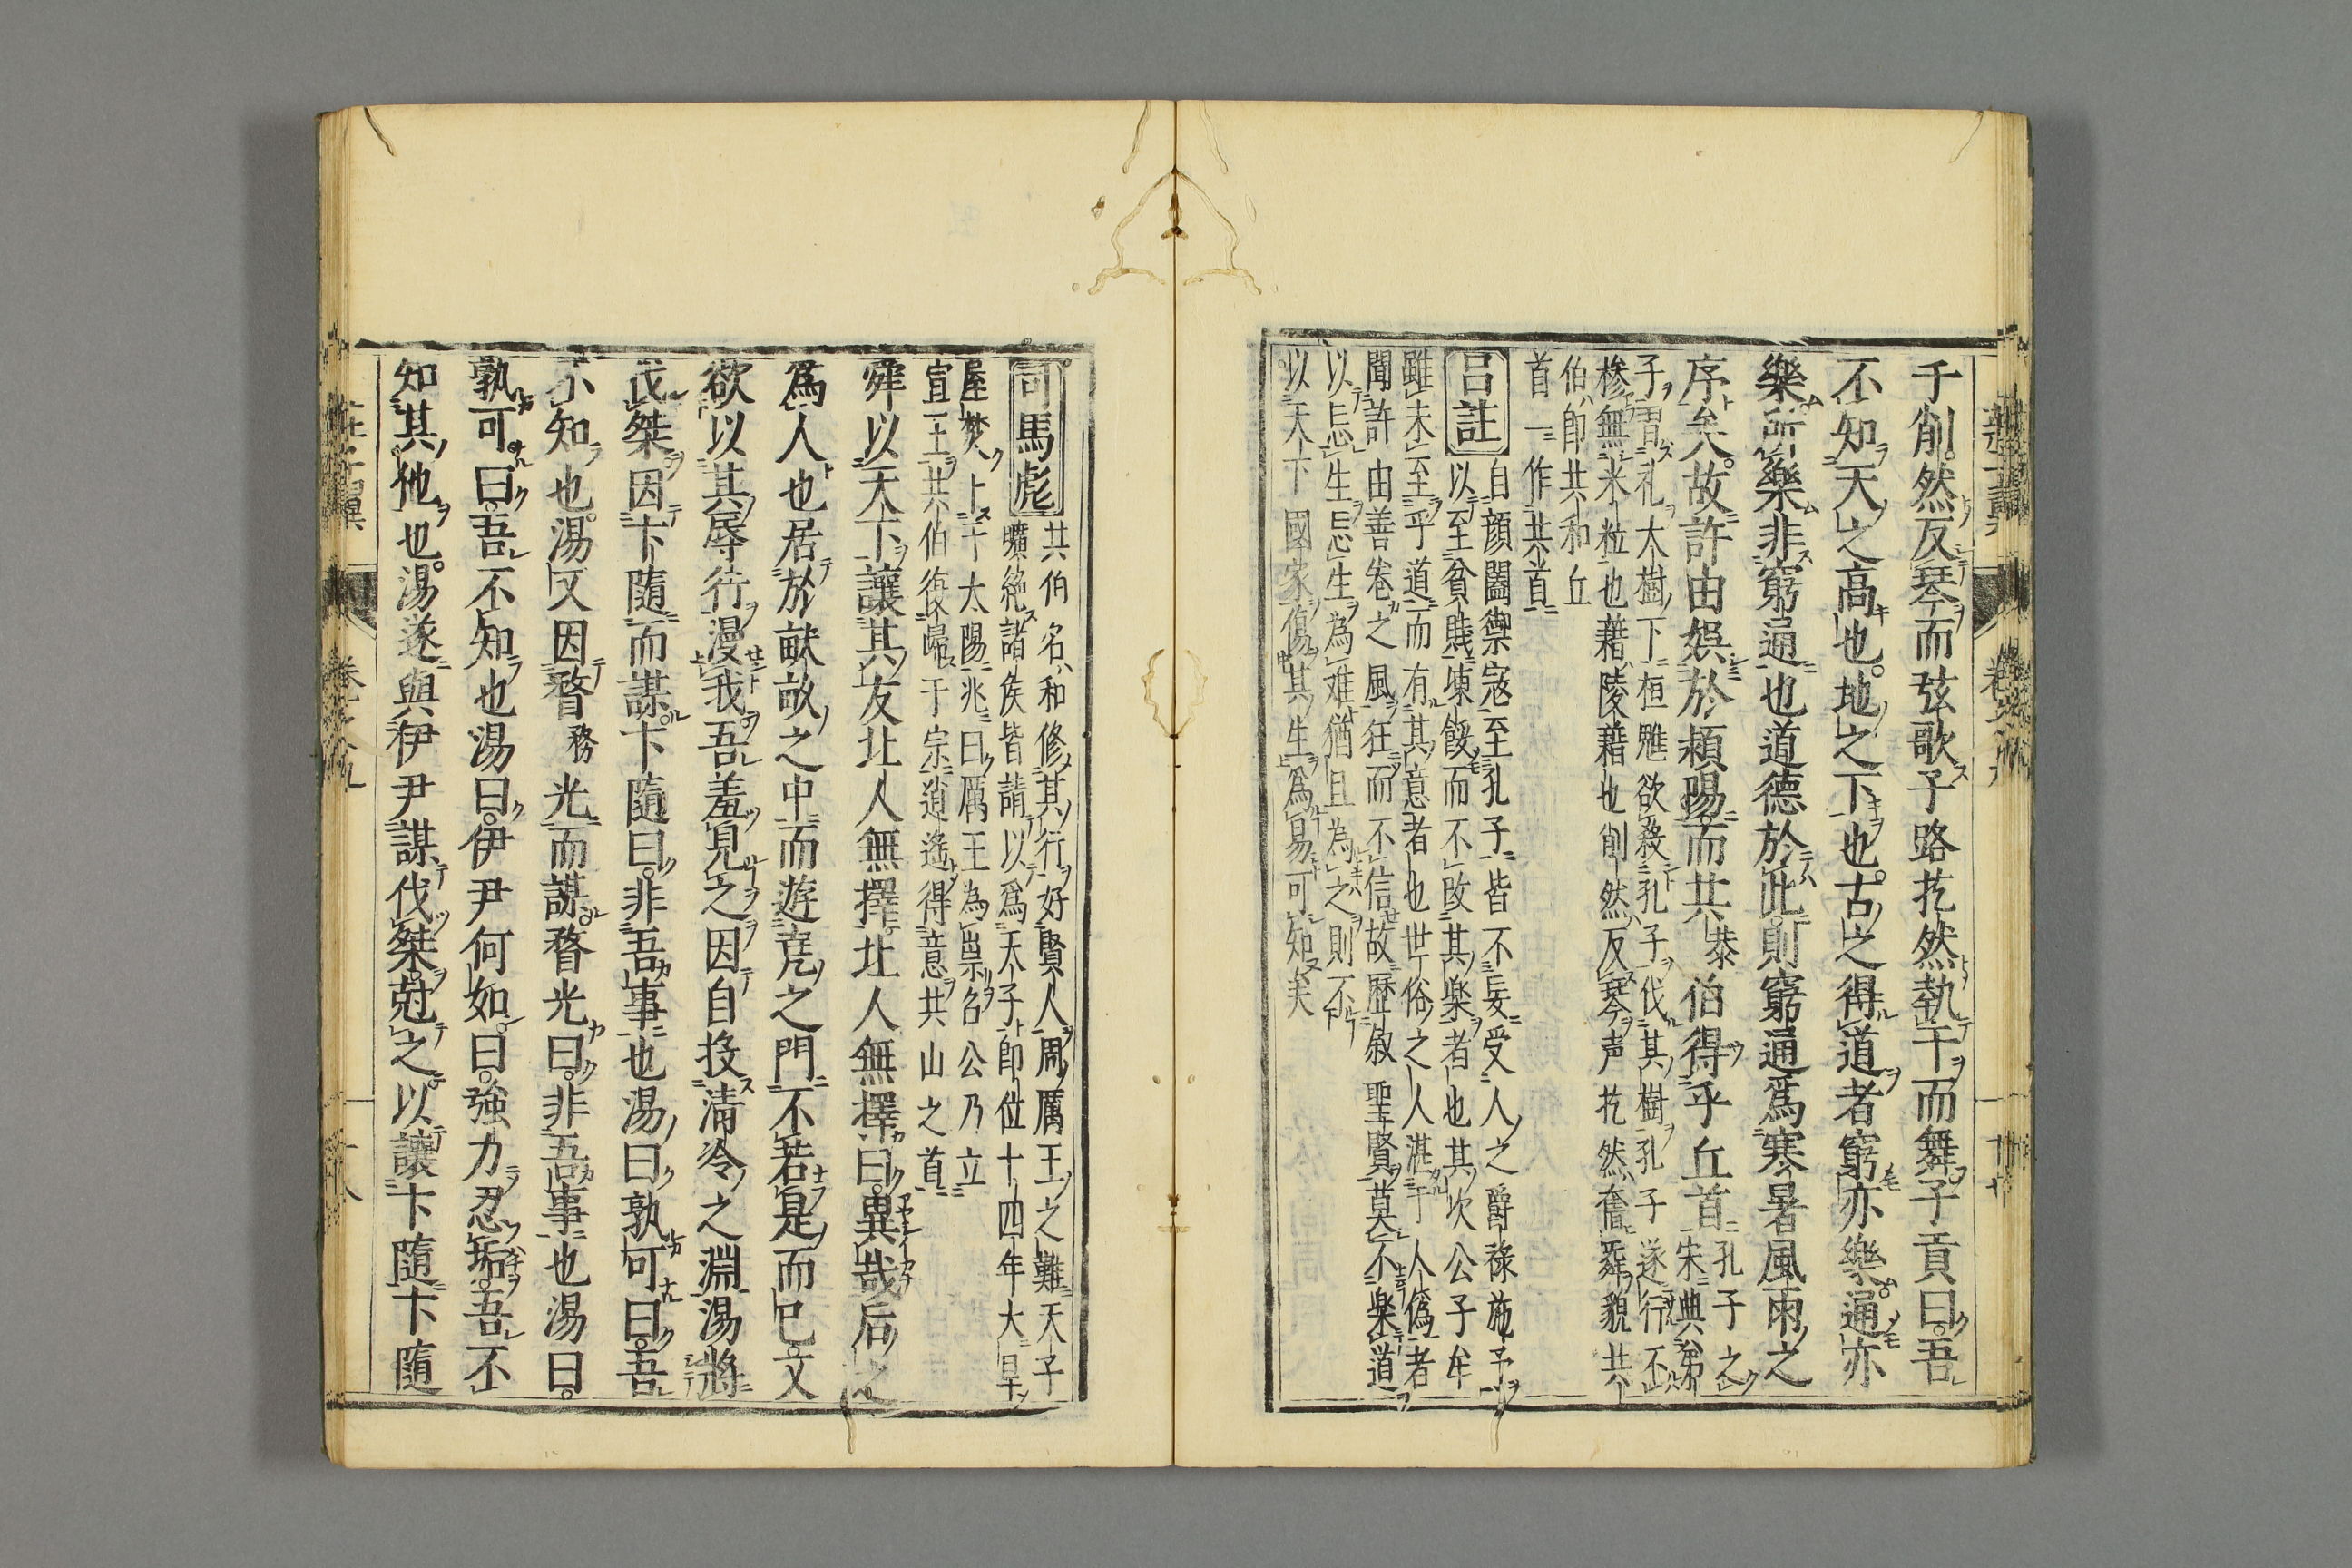 子削然反琴而弦歌子路扢然執干而舞子貢曰吾
不知天之高也地之下也古之得道者窮亦樂通亦
樂所樂非窮通也道德於此則窮通爲寒暑風雨之
序矣故許由娛於潁陽而共恭伯得乎丘首孔子之
宋典弟
子習礼大樹下桓魋欲殺孔子伐其樹孔子遂行不
糝無米粒也藉陵藉也削然反琴声扢然奮舞貌共
伯卽共和丘
首一作共首
呂註
自顏闔禦寇至孔子皆不妄受人之爵祿施予
以至貧賤凍餒而不改其樂者也其次公子牟
雖未至乎道而有其意者也世俗之人湛于人僞者
聞許由善卷之風狂而不信故歷敍聖賢莫不樂道
以忘生忘生爲难猶且為之則不
以天下國家傷其生爲易可知矣
司馬彪
共伯名和修其行好賢人周厲王之難天子
曠絶諸侯皆請以爲天子卽位十四年大旱
屋焚卜于太陽兆曰厲王為祟召公乃立
宣王共伯復歸于宗逍遙得意共山之首
舜以天下讓其友北人無擇北人無擇曰異哉后之
爲人也居於畎畝之中而遊堯之門不若是而已又
欲以其辱行漫我吾羞見之因自投清冷之淵湯將
伐桀因卞隨而謀卞隨曰非吾事也湯曰孰可曰吾
不知也湯又因瞀務光而謀瞀光曰非吾事也湯曰
孰可曰吾不知也湯曰伊尹何如曰強力忍垢吾不
知其他也湯遂與伊尹謀伐桀尅之以讓卞隨卞隨